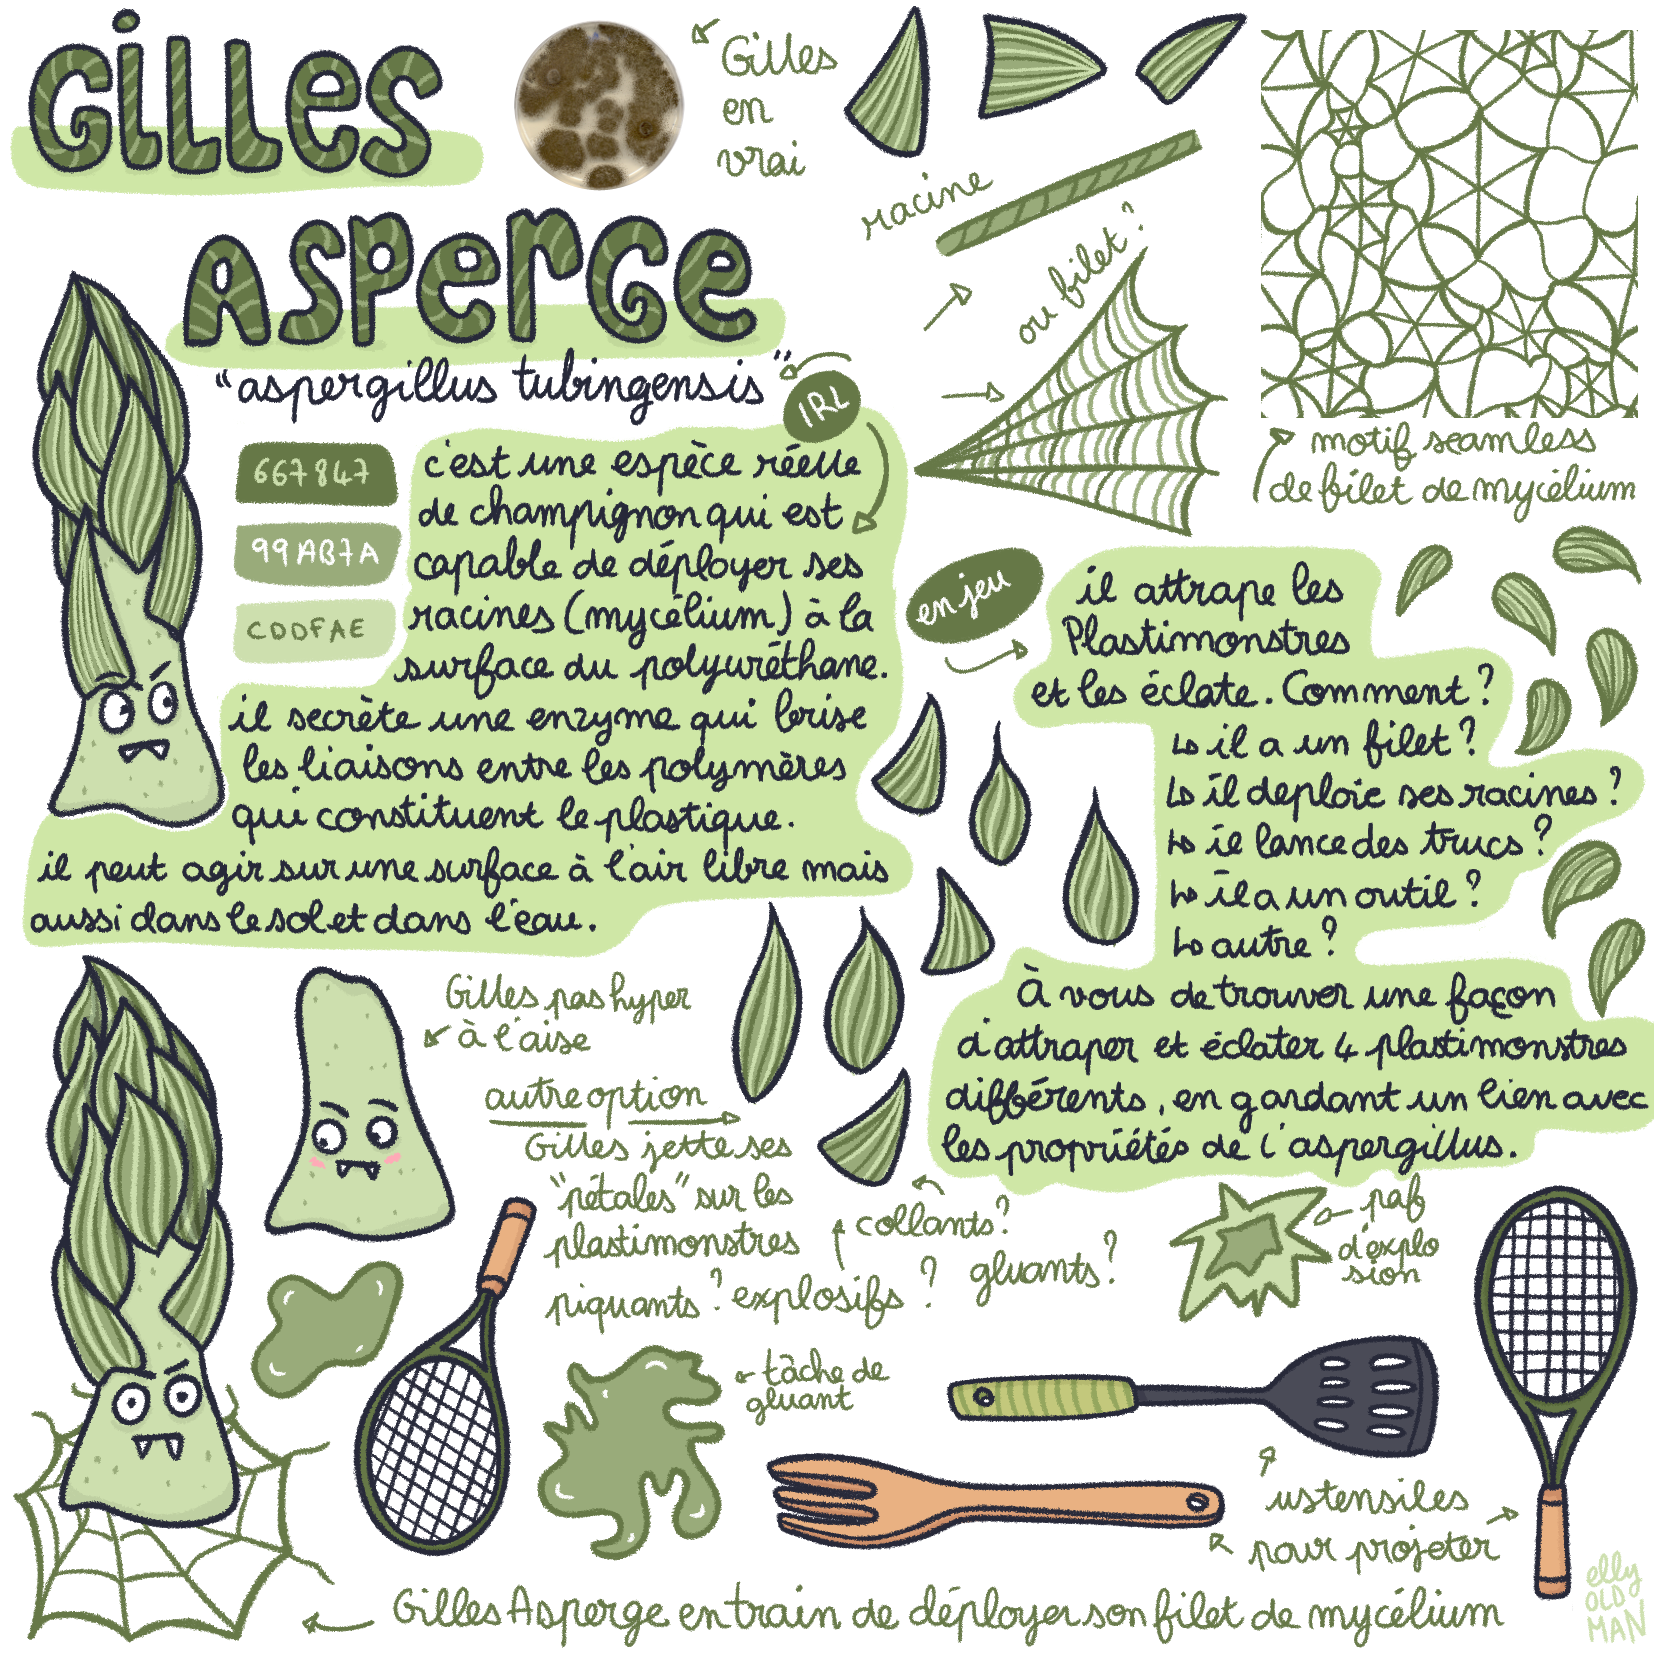 GILLES
ASPERGE
"aspergillus tubingensis"
IRL
Gilles
en
vrai
667847
99AB7A
CDDFAE
c'est une espèce réelle
de champignon qui est
capable de déployer ses
racines (mycélium) à la
surface du polyuréthane.
il secrète une enzyme qui brise
les liaisons entre les polymères
qui constituent le plastique.
il peut agir sur une surface à l'air libre mais
aussi dans le sol et dans l'eau.
racine
ou filet ?
motif seamless
de filet de mycélium
en jeu
il attrape les
Plastimonstres
et les éclate. Comment ?
↳ il a un filet ?
↳ il deploie ses racines ?
↳ il lance des trucs ?
↳ il a un outil ?
↳ autre ?
À vous de trouver une façon
d'attraper et éclater 4 plastimonstres
différents, en gardant un lien avec
les propriétés de l'aspergillus.
Gilles pas hyper
à l'aise
autre option
Gilles jette ses
"pétales" sur les
plastimonstres
piquants ? explosifs ?
collants ?
gluants ?
paf
d'explo
sion
tâche de
gluant
ustensiles
pour projeter
Gilles Asperge en train de déployer son filet de mycélium
elly
OLD
MAN